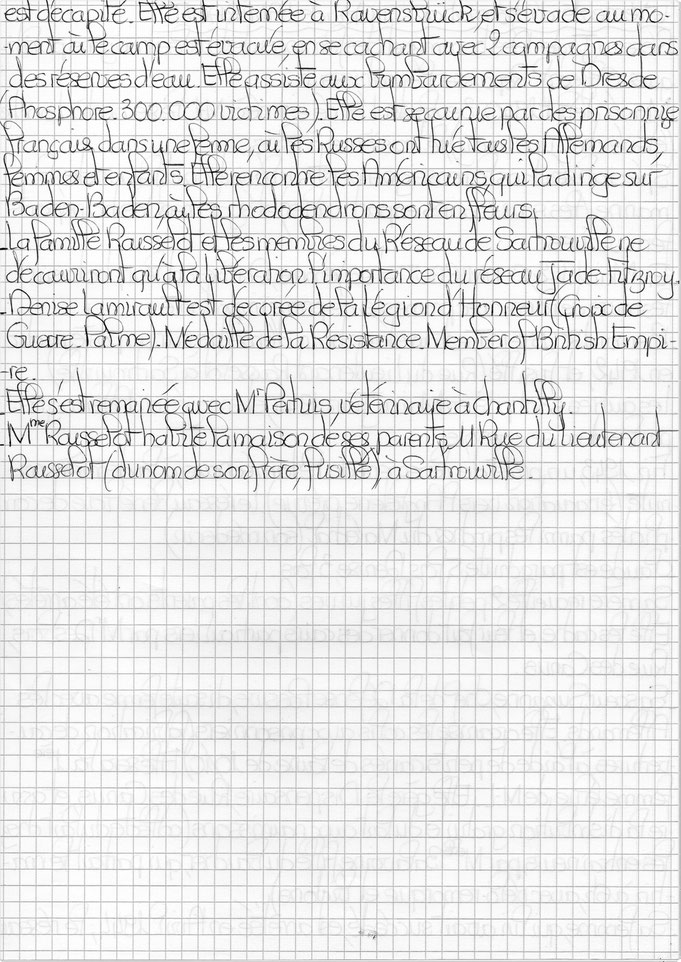 est décapité. Elle est internée à Ravenstrück, et s'évade au mo-
-ment où le camp est évacué, en se cachant avec 2 compagnes dans
des réserves d'eau. Elle assiste aux bombardements de Dresde
(Phosphore. 300.000 victimes). Elle est secourue par des prisonnie
français dans une ferme, où les Russes ont tué tous les Allemands,
femmes et enfants. Elle rencontre les Américains, qui la dirige sur
Baden-Baden, où les rhododendrons sont en fleurs,
La famille Rousselot et les membres du Réseau de Sartrouville ne
découvriront qu'à la libération l'importance du réseau Jade-Fitzroy.
Denise Lamirault est décorée de la Légion d'Honneur (Croix de
Guerre. Palme). Médaille de la Résistance. Member of British Empi-
-re.
Elle s'est remariée avec Mr Perthuis, vétérinaire à Chantilly.
Mme Rousselot habite la maison de ses parents, 11 Rue du Lieutenant
Rousselot (du nom de son frère, fusillé) à Sartrouville.